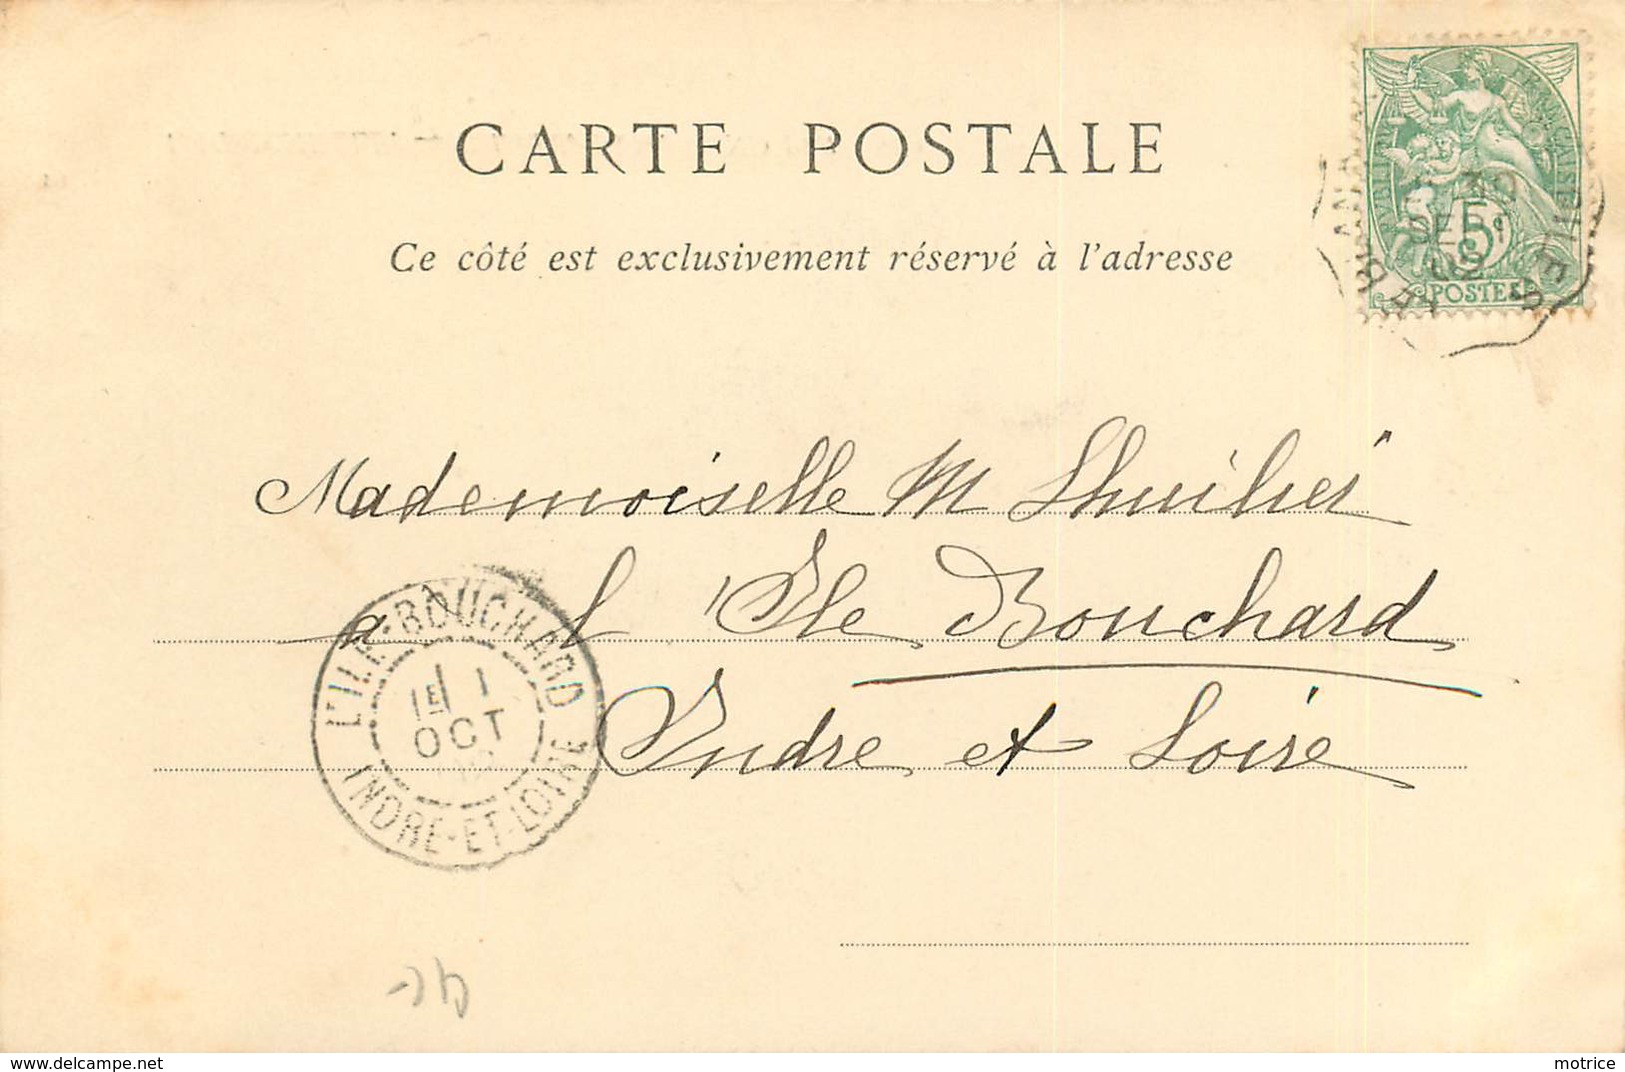 CARTE POSTALE
Ce côté est exclusivement réservé à l'adresse
RÉPUBLIQUE FRANÇAISE
5
POSTES
30
02
Mademoiselle M Lhuilier
a l'Ile Bouchard
Indre et Loire
L'ILE-BOUCHARD
1E 1
OCT
INDRE-ET-LOIRE
delcampe.net
motrice